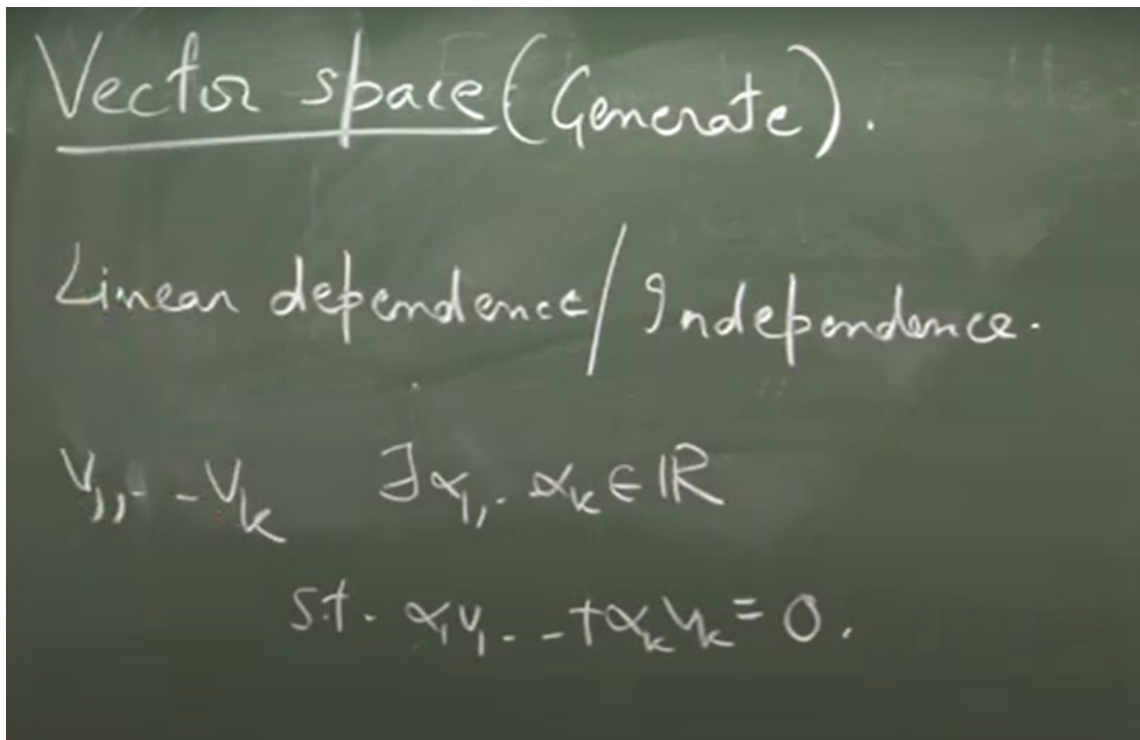 Vector space (Generate).
Linear dependence / Independence.
v₁, - - vₖ ∃ α₁, . αₖ ∈ ℝ
s.t. α₁v₁ - - + αₖvₖ = 0.